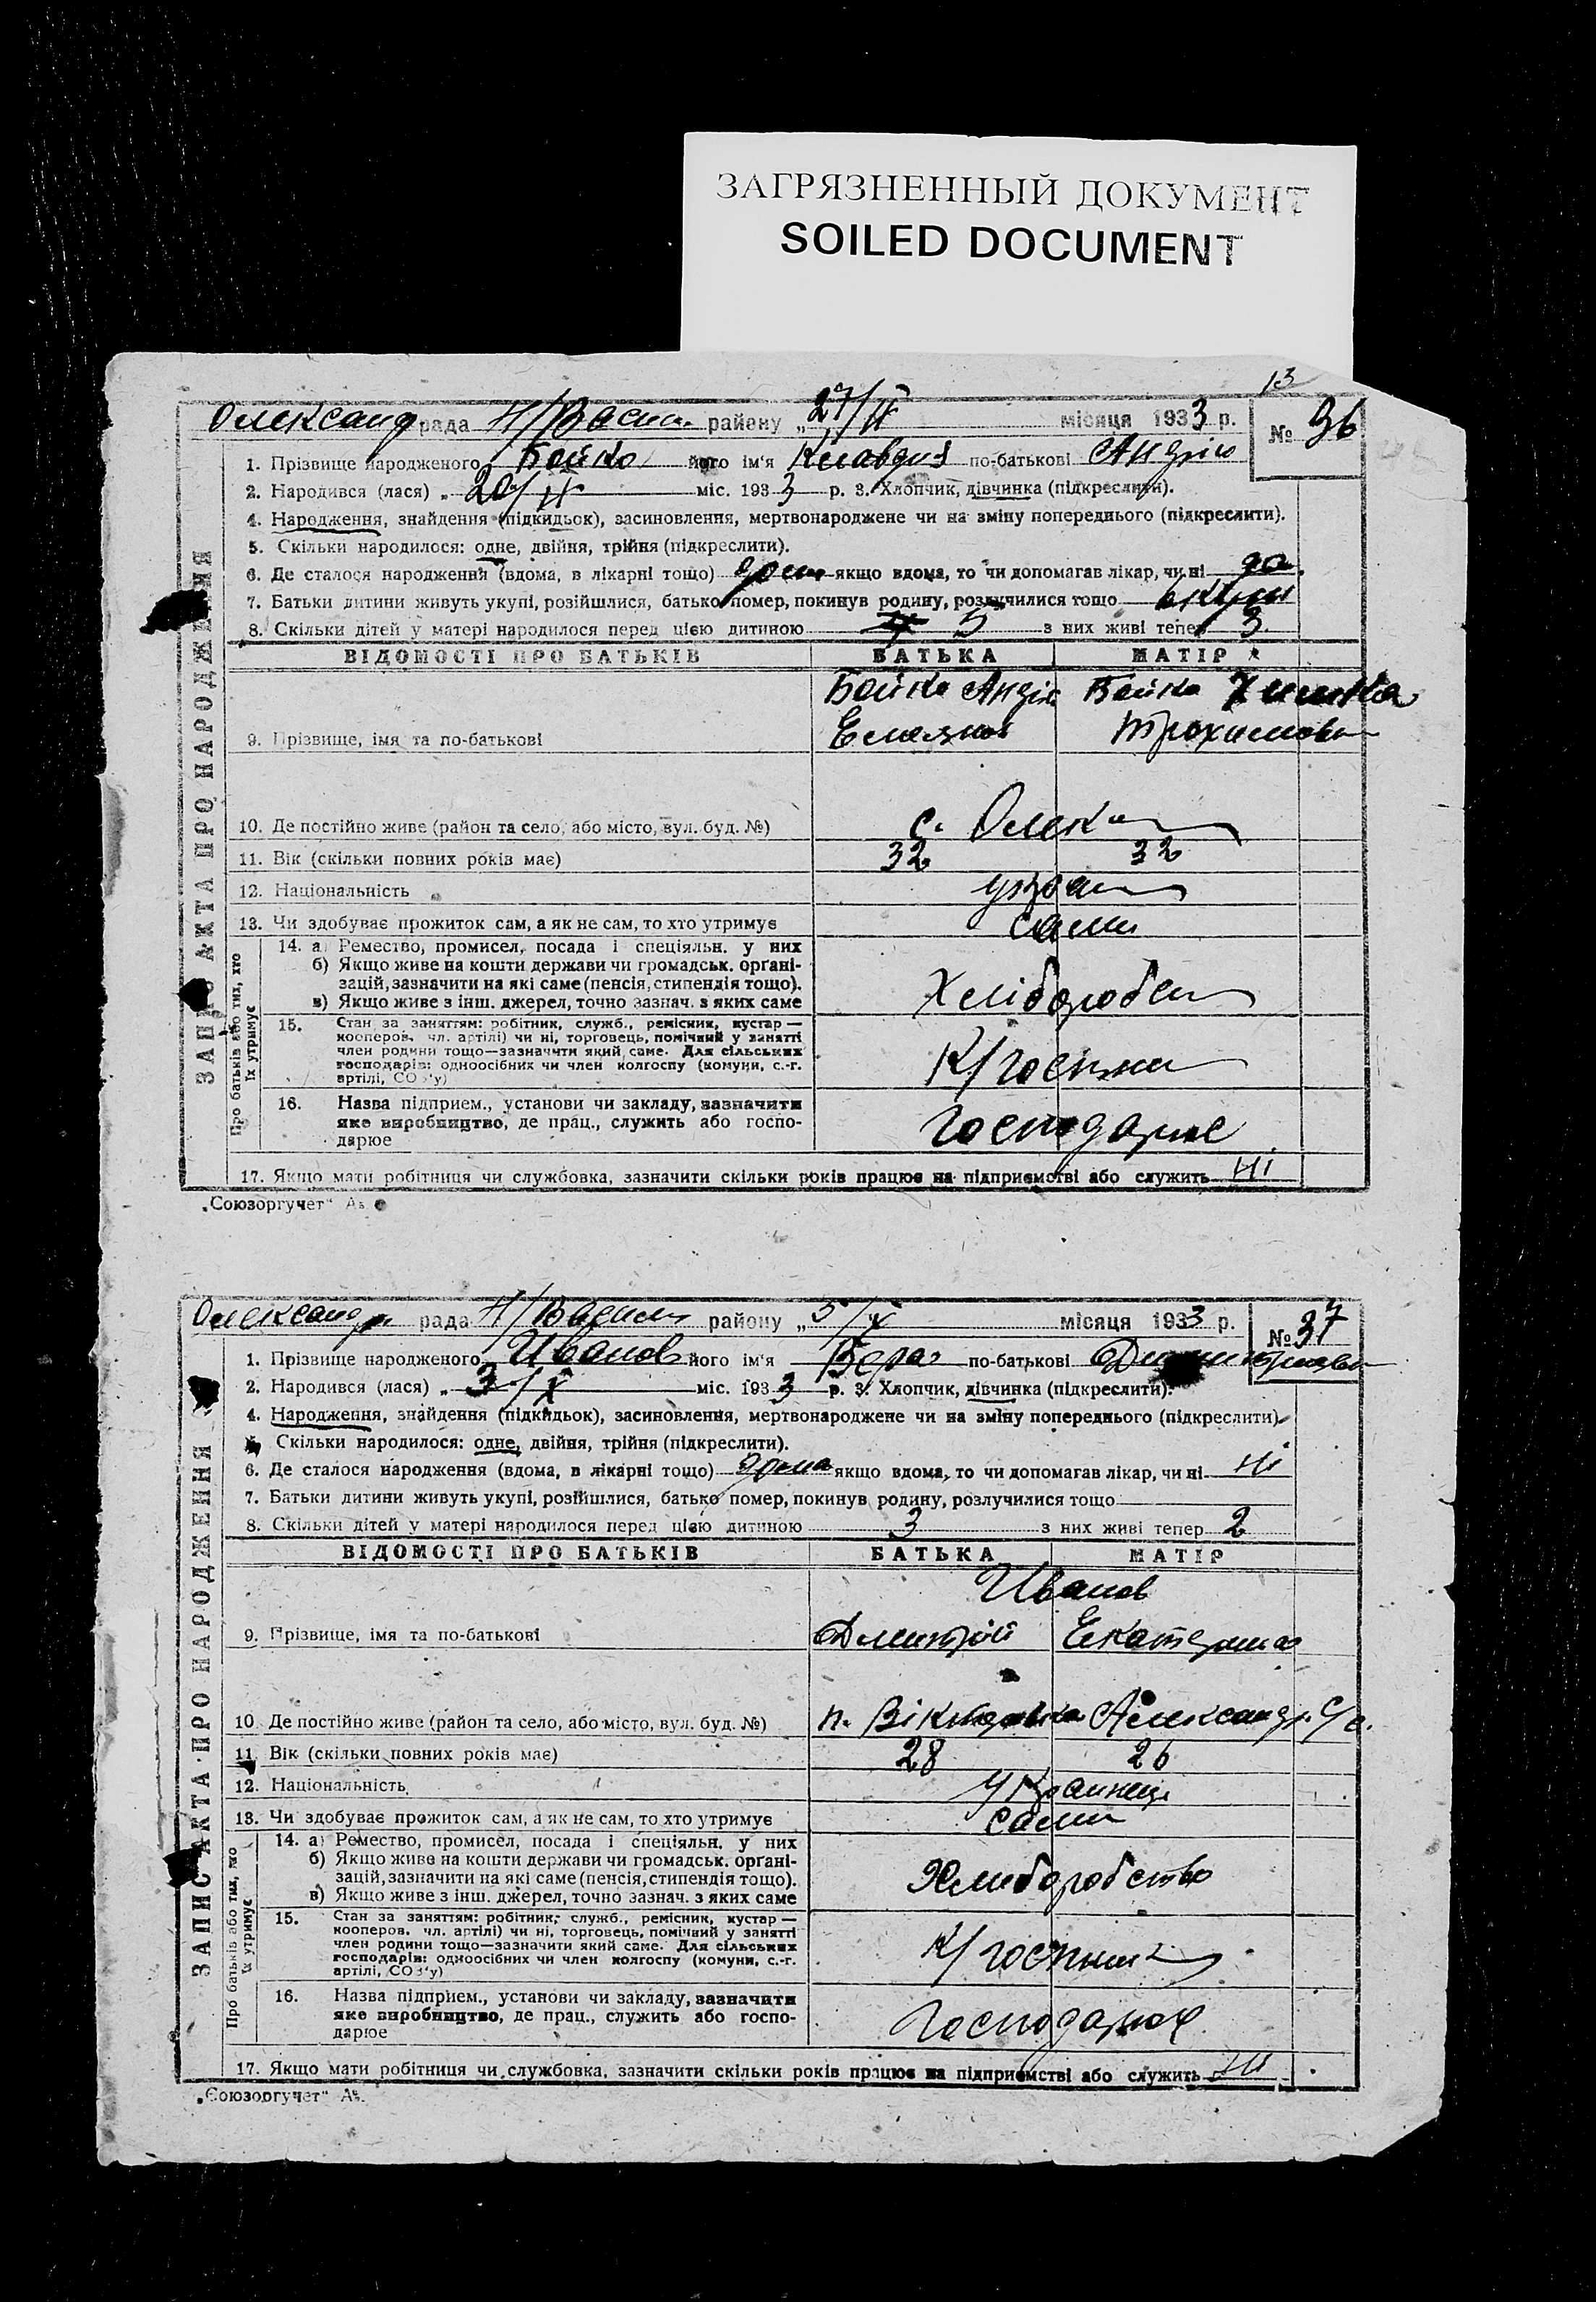 ЗАГРЯЗНЕННЫЙ ДОКУМЕНТ
SOILED DOCUMENT
13
Олександр рада Н/Васил. району „27/IX місяця 1933 р. № 36
1. Прізвище народженого Бойко його ім'я Клавдия по-батькові Андрію
2. Народився (лася) „20/IX міс. 1933 р. 3. Хлопчик, дівчинка (підкреслити).
4. Народження, знайдення (підкидьок), засиновлення, мертвонароджене чи на зміну попереднього (підкреслити).
5. Скільки народилося: одне, двійня, трійня (підкреслити).
6. Де сталося народження (вдома, в лікарні тощо) дом якщо вдома, то чи допомагав лікар, чи ні да
7. Батьки дитини живуть укупі, розійшлися, батько помер, покинув родину, розлучилися тощо вкупі
8. Скільки дітей у матері народилося перед цією дитиною 5 з них живі тепер 3
ВІДОМОСТІ ПРО БАТЬКІВ БАТЬКА МАТІР
Бойко Андрій Бойко
9. Прізвище, імя та по-батькові Емелянов Трохимовн
10. Де постійно живе (район та село, або місто, вул. буд. №) с. Олек
11. Вік (скільки повних років має) 32 32
12. Національність україн
13. Чи здобуває прожиток сам, а як не сам, то хто утримує сами
14. а) Ремество, промисел, посада і спеціяльн. у них
б) Якщо живе на кошти держави чи громадськ. орґані-
зацій, зазначити на які саме (пенсія, стипендія тощо).
в) Якщо живе з інш. джерел, точно зазнач. з яких саме
Хліборобсн
15. Стан за заняттям: робітник, служб., ремісник, кустар —
кооперов. чл. артілі) чи ні, торговець, помічний у занятті
член родини тощо—зазначити який саме. Для сільських
господарів: одноосібних чи член колгоспу (комуни, с.-г.
артілі, СОЗ'у)
К/госпник
16. Назва підприєм., установи чи закладу, зазначити
яке виробництво, де прац., служить або госпо-
дарює
Господарює
17. Якщо мати робітниця чи службовка, зазначити скільки років працює на підприємстві або служить Ні
ЗАПИС АКТА ПРО НАРОДЖЕННЯ
Про батьків або тих, хто їх утримує
„Союзоргучет“
Олександр рада Н/Васил району „5/X місяця 1933 р. № 37
1. Прізвище народженого Иванов його ім'я Вера по-батькові Дмитриевн
2. Народився (лася) „3/X міс. 1933 р. 3. Хлопчик, дівчинка (підкреслити).
4. Народження, знайдення (підкидьок), засиновлення, мертвонароджене чи на зміну попереднього (підкреслити)
Скільки народилося: одне, двійня, трійня (підкреслити).
6. Де сталося народження (вдома, в лікарні тощо) дома якщо вдома, то чи допомагав лікар, чи ні Ні
7. Батьки дитини живуть укупі, розійшлися, батько помер, покинув родину, розлучилися тощо
8. Скільки дітей у матері народилося перед цією дитиною 3 з них живі тепер 2
ВІДОМОСТІ ПРО БАТЬКІВ БАТЬКА МАТІР
Иванов
9. Прізвище, імя та по-батькові Дмитрій Екатерина
10. Де постійно живе (район та село, або місто, вул. буд. №) п. Александр. С/р.
11. Вік (скільки повних років має) 28 26
12. Національність Українець
13. Чи здобуває прожиток сам, а як не сам, то хто утримує сами
14. а) Ремество, промисел, посада і спеціяльн. у них
б) Якщо живе на кошти держави чи громадськ. орґані-
зацій, зазначити на які саме (пенсія, стипендія тощо).
в) Якщо живе з інш. джерел, точно зазнач. з яких саме
Хлиборобство
15. Стан за заняттям: робітник, служб., ремісник, кустар —
кооперов. чл. артілі) чи ні, торговець, помічний у занятті
член родини тощо—зазначити який саме. Для сільських
господарів: одноосібних чи член колгоспу (комуни, с.-г.
артілі, СОЗ'у)
К/госпник
16. Назва підприєм., установи чи закладу, зазначити
яке виробництво, де прац., служить або госпо-
дарює
Господарює
17. Якщо мати робітниця чи службовка, зазначити скільки років працює на підприємстві або служить Ні
ЗАПИС АКТА ПРО НАРОДЖЕННЯ
Про батьків або тих, хто їх утримує
„Союзоргучет“